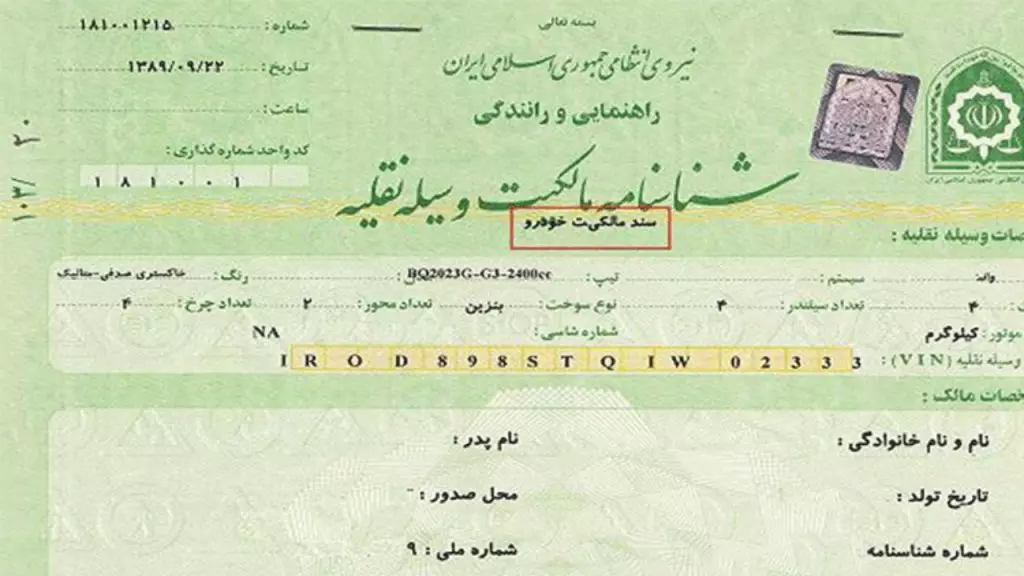 بسمه تعالی
نیروی انتظامی جمهوری اسلامی ایران
راهنمایی و رانندگی
شناسنامه مالکیت وسیله نقلیه
سند مالکیت خودرو
شماره : ۱۸۱۰۰۱۲۱۵
تاریخ : ۱۳۸۹/۰۹/۲۲
ساعت :
کد واحد شماره گذاری :
۱ ۸ ۱ ۰ ۰ ۱
۱۰۳/ ۲۰
صات وسیله نقلیه :
وانت سیستم : تیپ : BQ2023G-G3-2400cc رنگ : خاکستری صدفی-متالیک
۴ تعداد سیلندر : ۴ نوع سوخت : بنزین تعداد محور : ۲ تعداد چرخ : ۴
موتور : کیلوگرم شماره شاسی : NA
وسیله نقلیه (VIN) : I R O D 8 9 8 S T Q I W 0 2 3 3 3
خصات مالک :
نام و نام خانوادگی : نام پدر :
تاریخ تولد : محل صدور : -
شماره شناسنامه شماره ملی : ۹